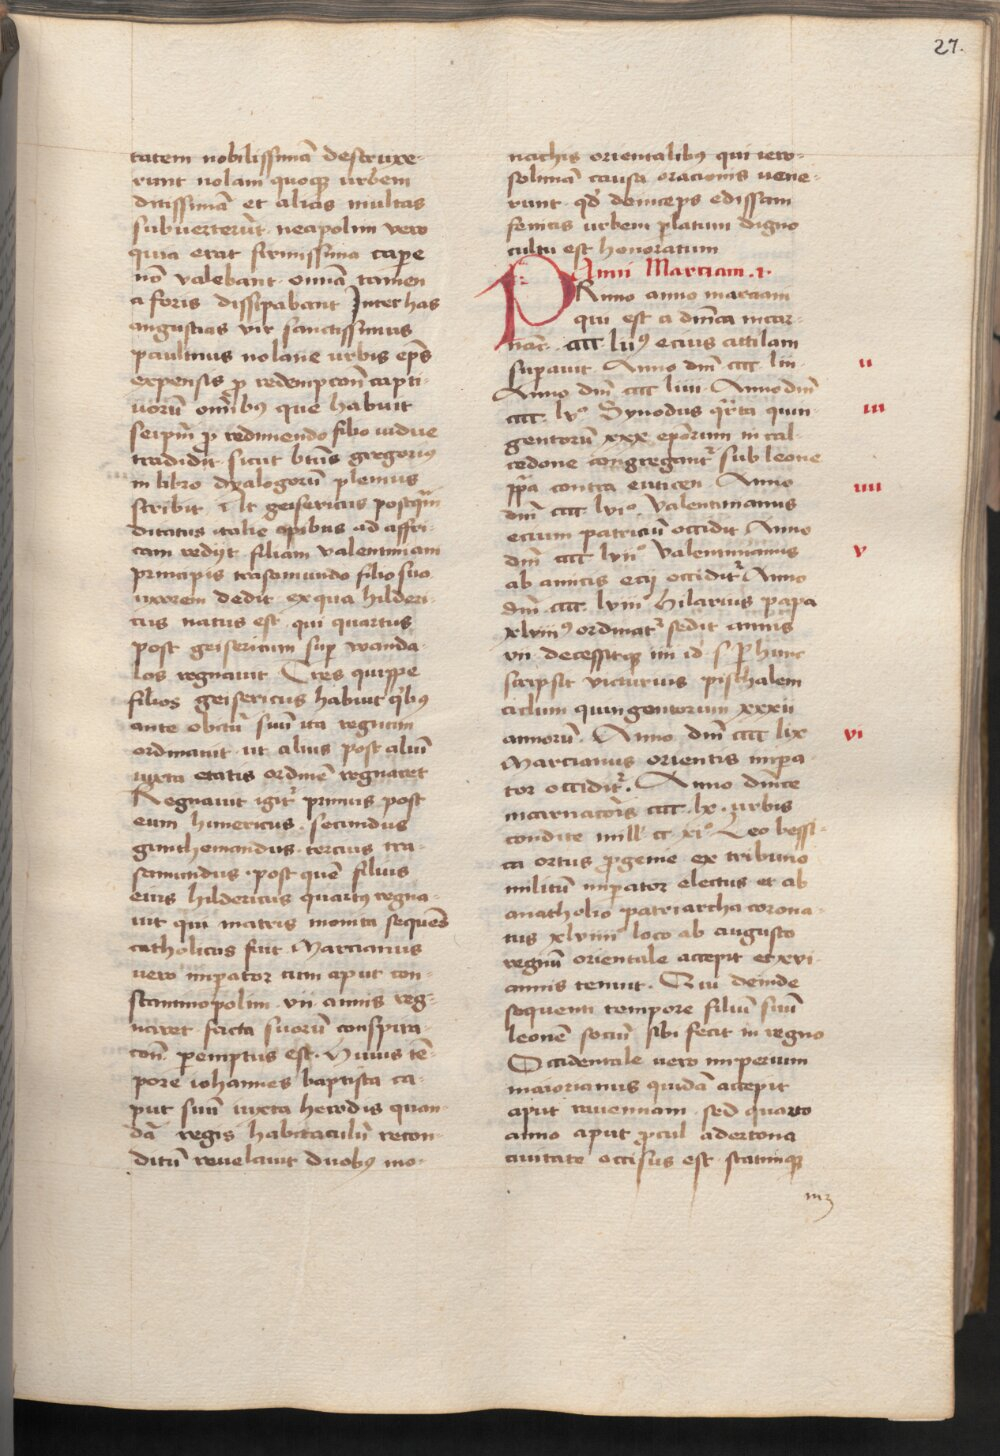 27.
tatem nobilissimā destruxe-
runt nolam quoqꝫ urbem
ditissimā et alias multas
subuerterūt neapolim vero
quia erat firmissima cape
nō valebant omīa tamen
a foris dissipabant Inter has
angustias vir sanctissimus
paulinus nolane urbis ep̄s
expensis p̱ redempcōn̄ capti-
uorū om̄ibꝰ que habuit
seip̄m p̱ redimendo filio uidue
tradidit sicut btū̄s gregoriꝰ
in libro dyalogorū plenius
scribit At geisericus postq̄m
ditatus italie opibus ad affri-
cam redijt filiam valentiniani
principis trasamundo filio suo
uxorem dedit ex qua hilderi-
cus natus est qui quartus
post geisericum sup̱ wanda-
los regnauit Tres quippe
filios geisericus habuit q̄ibꝰ
ante obitū suū ita regnum
ordinauit ut alius post aliū
iuxta etatis ordinē regnaret
Regnauit igit᷑ primus post
eum hunericus secundus
gunthemundus tercius tra-
samundus post quē filius
eius hildericus quartꝰ regna-
uit qui matris monita sequēs
catholicus fuit Marcianus
vero imp̱ator cum aput con-
stantinopolim vii annis reg-
naret facta suorū conspira-
cōn̄ p̱emptus est Huius tē-
pore iohannes baptista ca-
put suū iuxta herodis quon-
dā regis habitaculū recon-
ditū reuelauit duobꝰ mo-
nachis orientalibꝰ qui iero-
solimā causa oracionis uene-
runt qd̄ deinceps edissam
fenicis urbem p̱latum digno
cultu est honoratum
Anni Marciani i
PRimo anno marciani
qui est a dn̄ica incar-
nac̄ cccc liiꝰ ecius attilam
sup̱auit Anno dnī cccc liii
ii
Anno dnī cccc liiii Anno dnī
cccc lv° Synodus q̄rta quin-
iii
gentorū xxx ep̄orum in cal-
cedone congregant᷑ sub leone
pp̄a contra euticen Anno
iiii
dnī cccc lvi° Valentinianus
ecium patriciū occidit Anno
dnī cccc lvii° Valentinianus
v
ab amicis ecij occidit᷑ Anno
dnī cccc lviii hilarius papa
xlviiiꝰ ordinat᷑ sedit annis
vii decessitqꝫ iiii id s P̱ hunc
scripsit victurius paschalem
ciclum quingentorum xxxii
annorū Anno dnī cccc lix
vi
Marcianus orientis imp̱a-
tor occidit᷑. Anno dn̄ice
incarnacōis cccc lx urbis
condite mill̄ cc xi° Leo bessi-
ca ortus p̱genie ex tribuno
militū imp̱ator electus et ab
anatholio patriarcha corona-
tus xlviiii loco ab augusto
regnū orientale accepit et xvi
annis tenuit. Qui deinde
sequenti tempore filiū suū
leonē sociū sibi fecit in regno
Occidentale uero imperium
maiorianus quidā accepit
aput rauennam sed quarto
anno aput p̱cul a dertona
ciuitate occisus est statimqꝫ